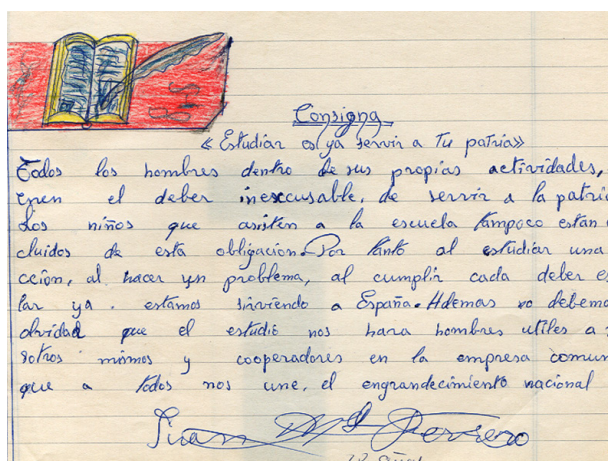 Consigna
« Estudiar es ya servir a Tu patria»
Todos los hombres dentro de sus propias actividades,
enen el deber inexcusable, de servir a la patria
Los niños que asisten a la escuela tampoco están
cluidos de esta obligacion. Por tanto al estudiar una
cción, al hacer un problema, al cumplir cada deber es
lar ya. estamos sirviendo a España. Ademas no debemo
olvidad que el estudio nos hara hombres utiles a
sotros mismos y cooperadores en la empresa comun
que a todos nos une, el engrandecimiento nacional
Juan Mª Ferrero
años